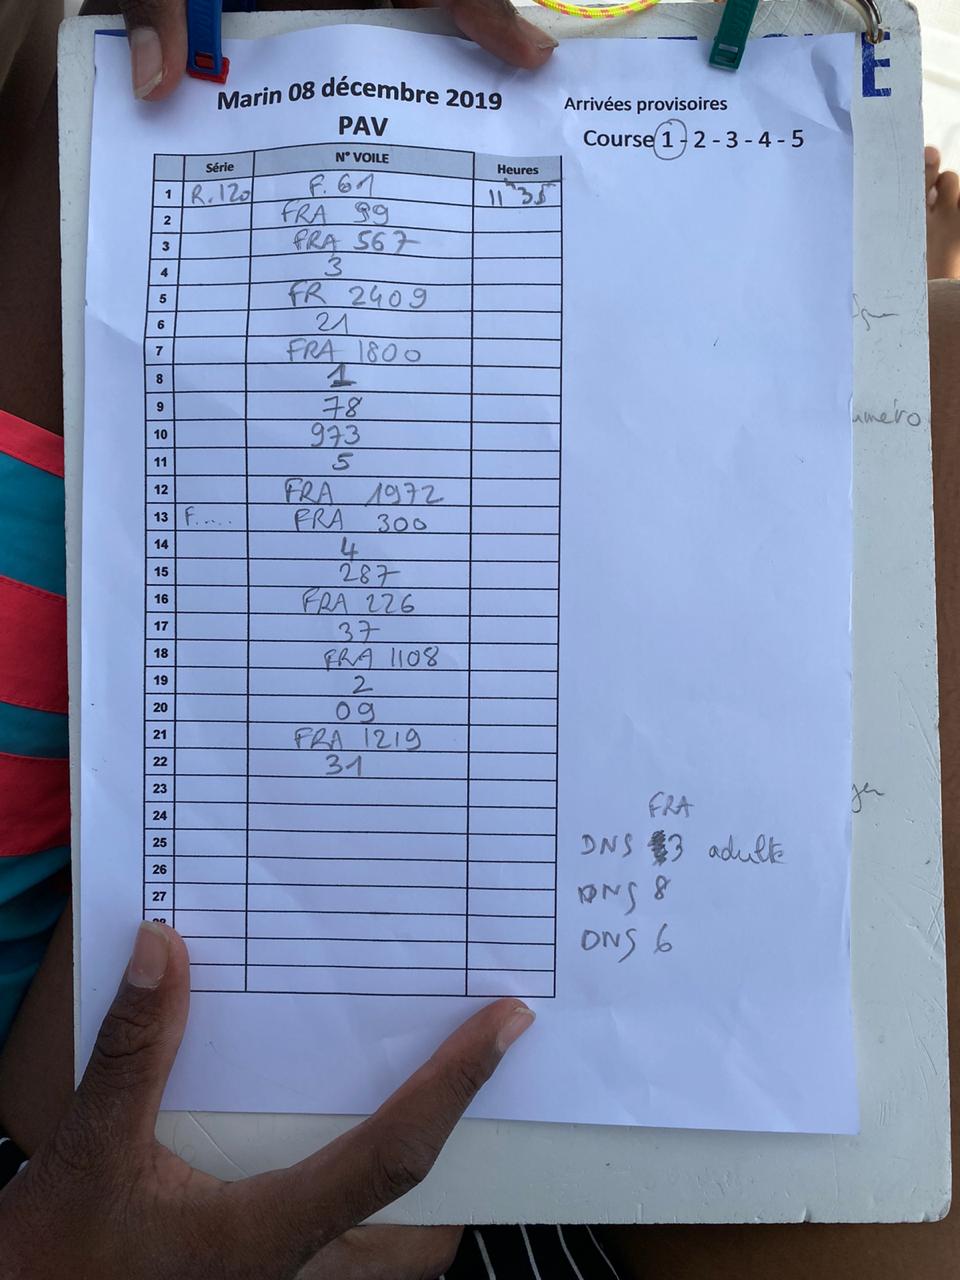 E
Marin 08 décembre 2019
Arrivées provisoires
PAV
Course 1 - 2 - 3 - 4 - 5
Série N° VOILE Heures
1 R.120 F. 61 11 35
2 FRA 99
3 FRA 567
4 3
5 FR 2409
6 21
7 FRA 1800
8 1
9 78
10 973
11 5
12 FRA 1972
13 F.... FRA 300
14 4
15 287
16 FRA 226
17 37
18 FRA 1108
19 2
20 09
21 FRA 1219
22 31
23
24
25
26
27
28
FRA
DNS 3 adulte
DNS 8
DNS 6
uméro